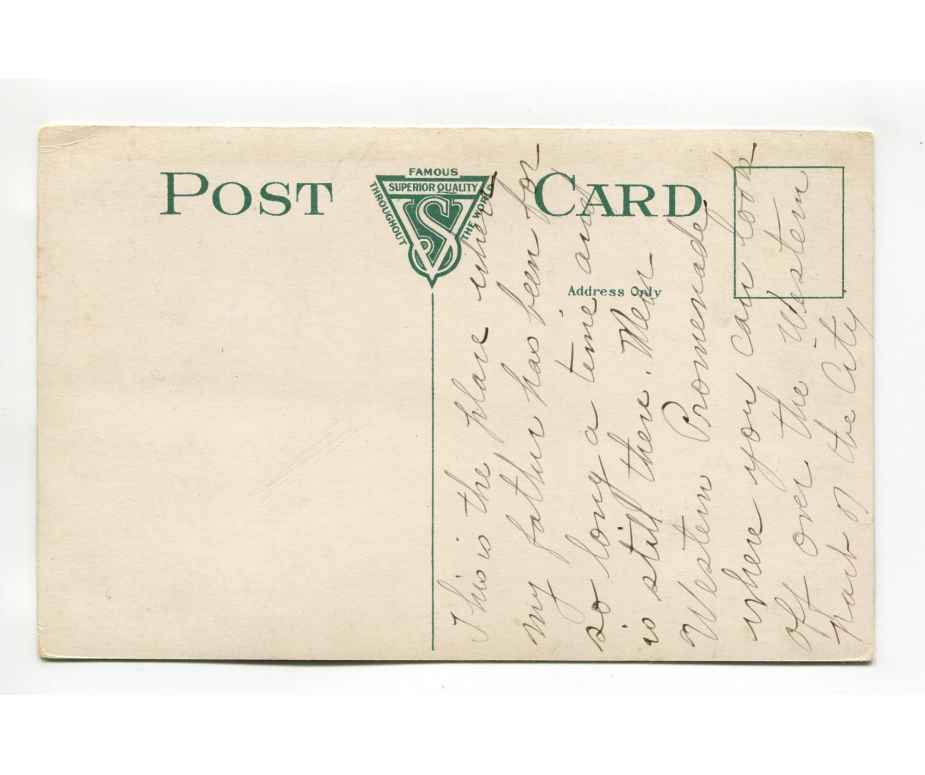 POST CARD
FAMOUS
SUPERIOR QUALITY
THROUGHOUT
THE WORLD
VS
Address Only
This is the place where
my father has been for
so long a time and
is still there. Near
Western Promenade
where you can look
off over the Western
part of the City